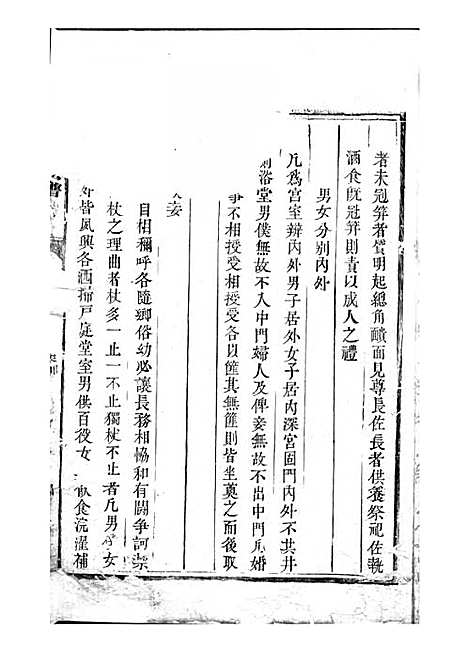 者未冠笄者質明起總角靧面見尊長佐長者供養祭祀佐執
酒食既冠笄則責以成人之禮
男女分別內外
凡為宮室辨內外男子居外女子居內深宮固門內外不共井
浴堂男僕無故不入中門婦人及俾妾無故不出中門凡婚
不相授受相授受各以篚其無篚則皆坐奠之而後取
妾
自相稱呼各隨鄉俗幼必讓長務相恊和有鬪爭訶禁
杖之理曲者杖多一止一不止獨杖不止者凡男女
皆夙興各洒掃戸庭堂室男供百役女飲食浣濯補